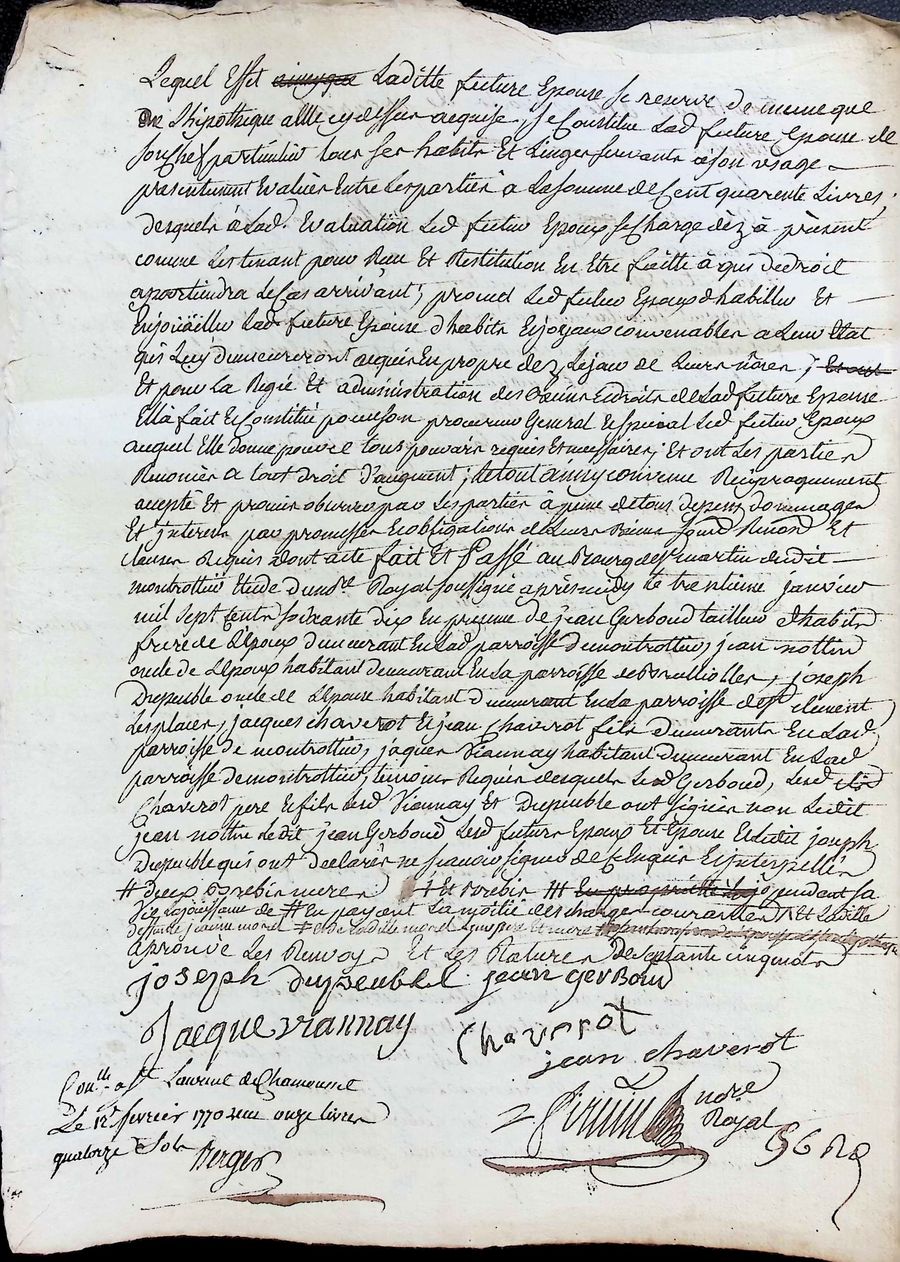 Lequel Effet Laditte future Epouse se reserve de meme que
De L'hipotheque a Elle cy dessus acquise, se Constitue Lad. future Epouse de
son Chef particulier tous ses habits Et Linges servants a son usage
presentement Evalués Entre Les parties à La somme de Cent quarente Livres,
desquels à Lad. Evaluation Led. futur Epoux se Charge dèz à présent
comme Les tenant pour Rendu Et Restitution En Etre faitte à qui de droit
apartiendra Le Cas arrivant; promet Led. futur Epoux d'habiller Et
Enjoüailler Lad. future Epouse d'habits Et joyaux convenables a Leur Etat
qui Luy demeureront acquis En propre dez Le jour de Leurs nôces;
Et pour La Regie Et administration des Biens Et droits de Lad. future Epouse
Elle à fait Et Constitué pour son procureur General Et special Led. futur Epoux
auquel Elle donne pouvoir tous pouvoirs requis Et necessaires; Et ont Les parties
Renoncées a tout droit d'augment; Le tout ainsy convenu Reciproquement
accepté Et promis observer par Les parties à peine de tous depens dommages
Et Interets par promesses Et obligations de Leurs Biens Et
clauses Requis Dont acte fait Et Passé au Bourg de St martin dudit
montrottier Etude du nore. Royal soussigné après midy Le trentieme janvier
mil sept Cents soixante dix En presence de jean Gerboud tailleur d'habits
frere de L'Epoux demeurant En Lad. parroisse de montrottier, jean nottin
oncle de L'Epoux habitant demeurant En La parroisse de Brullioles, joseph
Dupeuble oncle de L'Epouse habitant demeurant En La parroisse de St clement
Les places, jacques chaverot Et jean Chaverot fils demeurants En Lad.
parroisse de montrottier, jaques Viannay habitant demeurant En Lad.
parroisse de montrottier, temoins Requis desquels Led. Gerboud, Lesd.
Chaverot pere Et fils Led. Viannay Et Dupeuble ont signés non Ledit
jean nottin Ledit jean Gerboud Lesd. futurs Epoux Et Epouse Et Ledit joseph
Dupeuble qui ont Declarés ne scavoir signer de ce Enquis Et interpellés
# deux brebis meres † Et brebis ### pendant sa
vie La jouissance de # En payant La moitié des charges courantes Et Laditte
deffunte jeanne morel # de Laditte morel Leurs pere Et mere
aprouvé Les Renvoys Et Les Ratures De septante cinq mots
joseph dupeuble jean gerboud
Jacque viannay Chaverot
jean chaverot
Conlle. a St Laurent de Chamousset
Le 12e fevrier 1770 Receu onze livres nore
quatorze Sols Royal
Berger